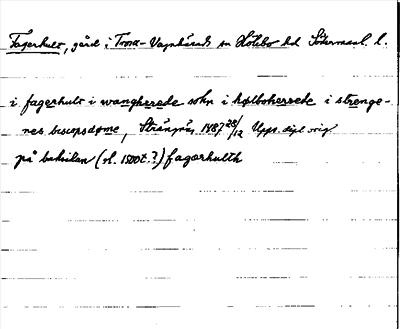 Fagerhult, gård i Trosa-Vagnhärads sn Hölebo hd Södermanl. l.
i fagerhult i wangherede sokn i hølboherrede i strenge-
nes biscopsdøme, Strängnäs 1487 28/12 Upps. dipl. orig.
på baksidan (sl. 1500t.?) fagerhulth